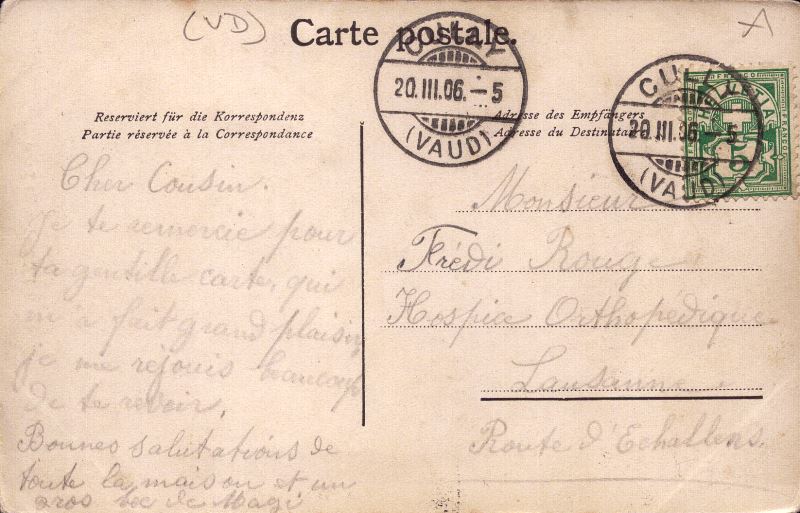 (VD)
A
Carte postale.
CULLY
20.III.06.-5
(VAUD)
CULLY
20.III.06.-5
(VAUD)
HELVETIA
FRANCO
5
Reserviert für die Korrespondenz
Partie réservée à la Correspondance
Adresse des Empfängers
Adresse du Destinataire
Cher Cousin.
Je te remercie pour
ta gentille carte, qui
m'a fait grand plaisir
je me réjouis beaucoup
de te revoir.
Bonnes salutations de
toute la maison et un
gros bec de Magi
Monsieur
Frédi Rouge
Hospice Orthopedique
Lausanne.
Route d'Echallens.